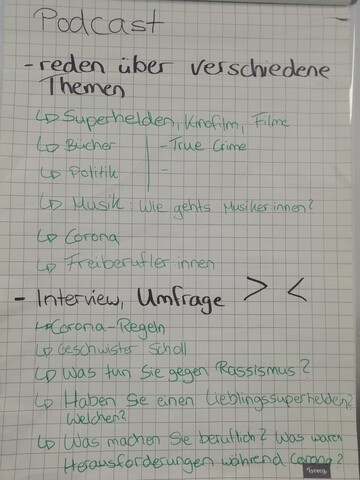 Podcast
- reden über verschiedene
Themen
↳ Superhelden, Kinofilm, Filme
↳ Bücher | - True Crime
↳ Politik | -
↳ Musik: Wie gehts Musiker innen?
↳ Corona
↳ Freiberufler innen
- Interview, Umfrage > <
↳ Corona-Regeln
↳ Geschwister Scholl
↳ Was tun Sie gegen Rassismus?
↳ Haben Sie einen Lieblingssuperhelden?
Welchen?
↳ Was machen Sie beruflich? Was waren
Herausforderungen während Corona?